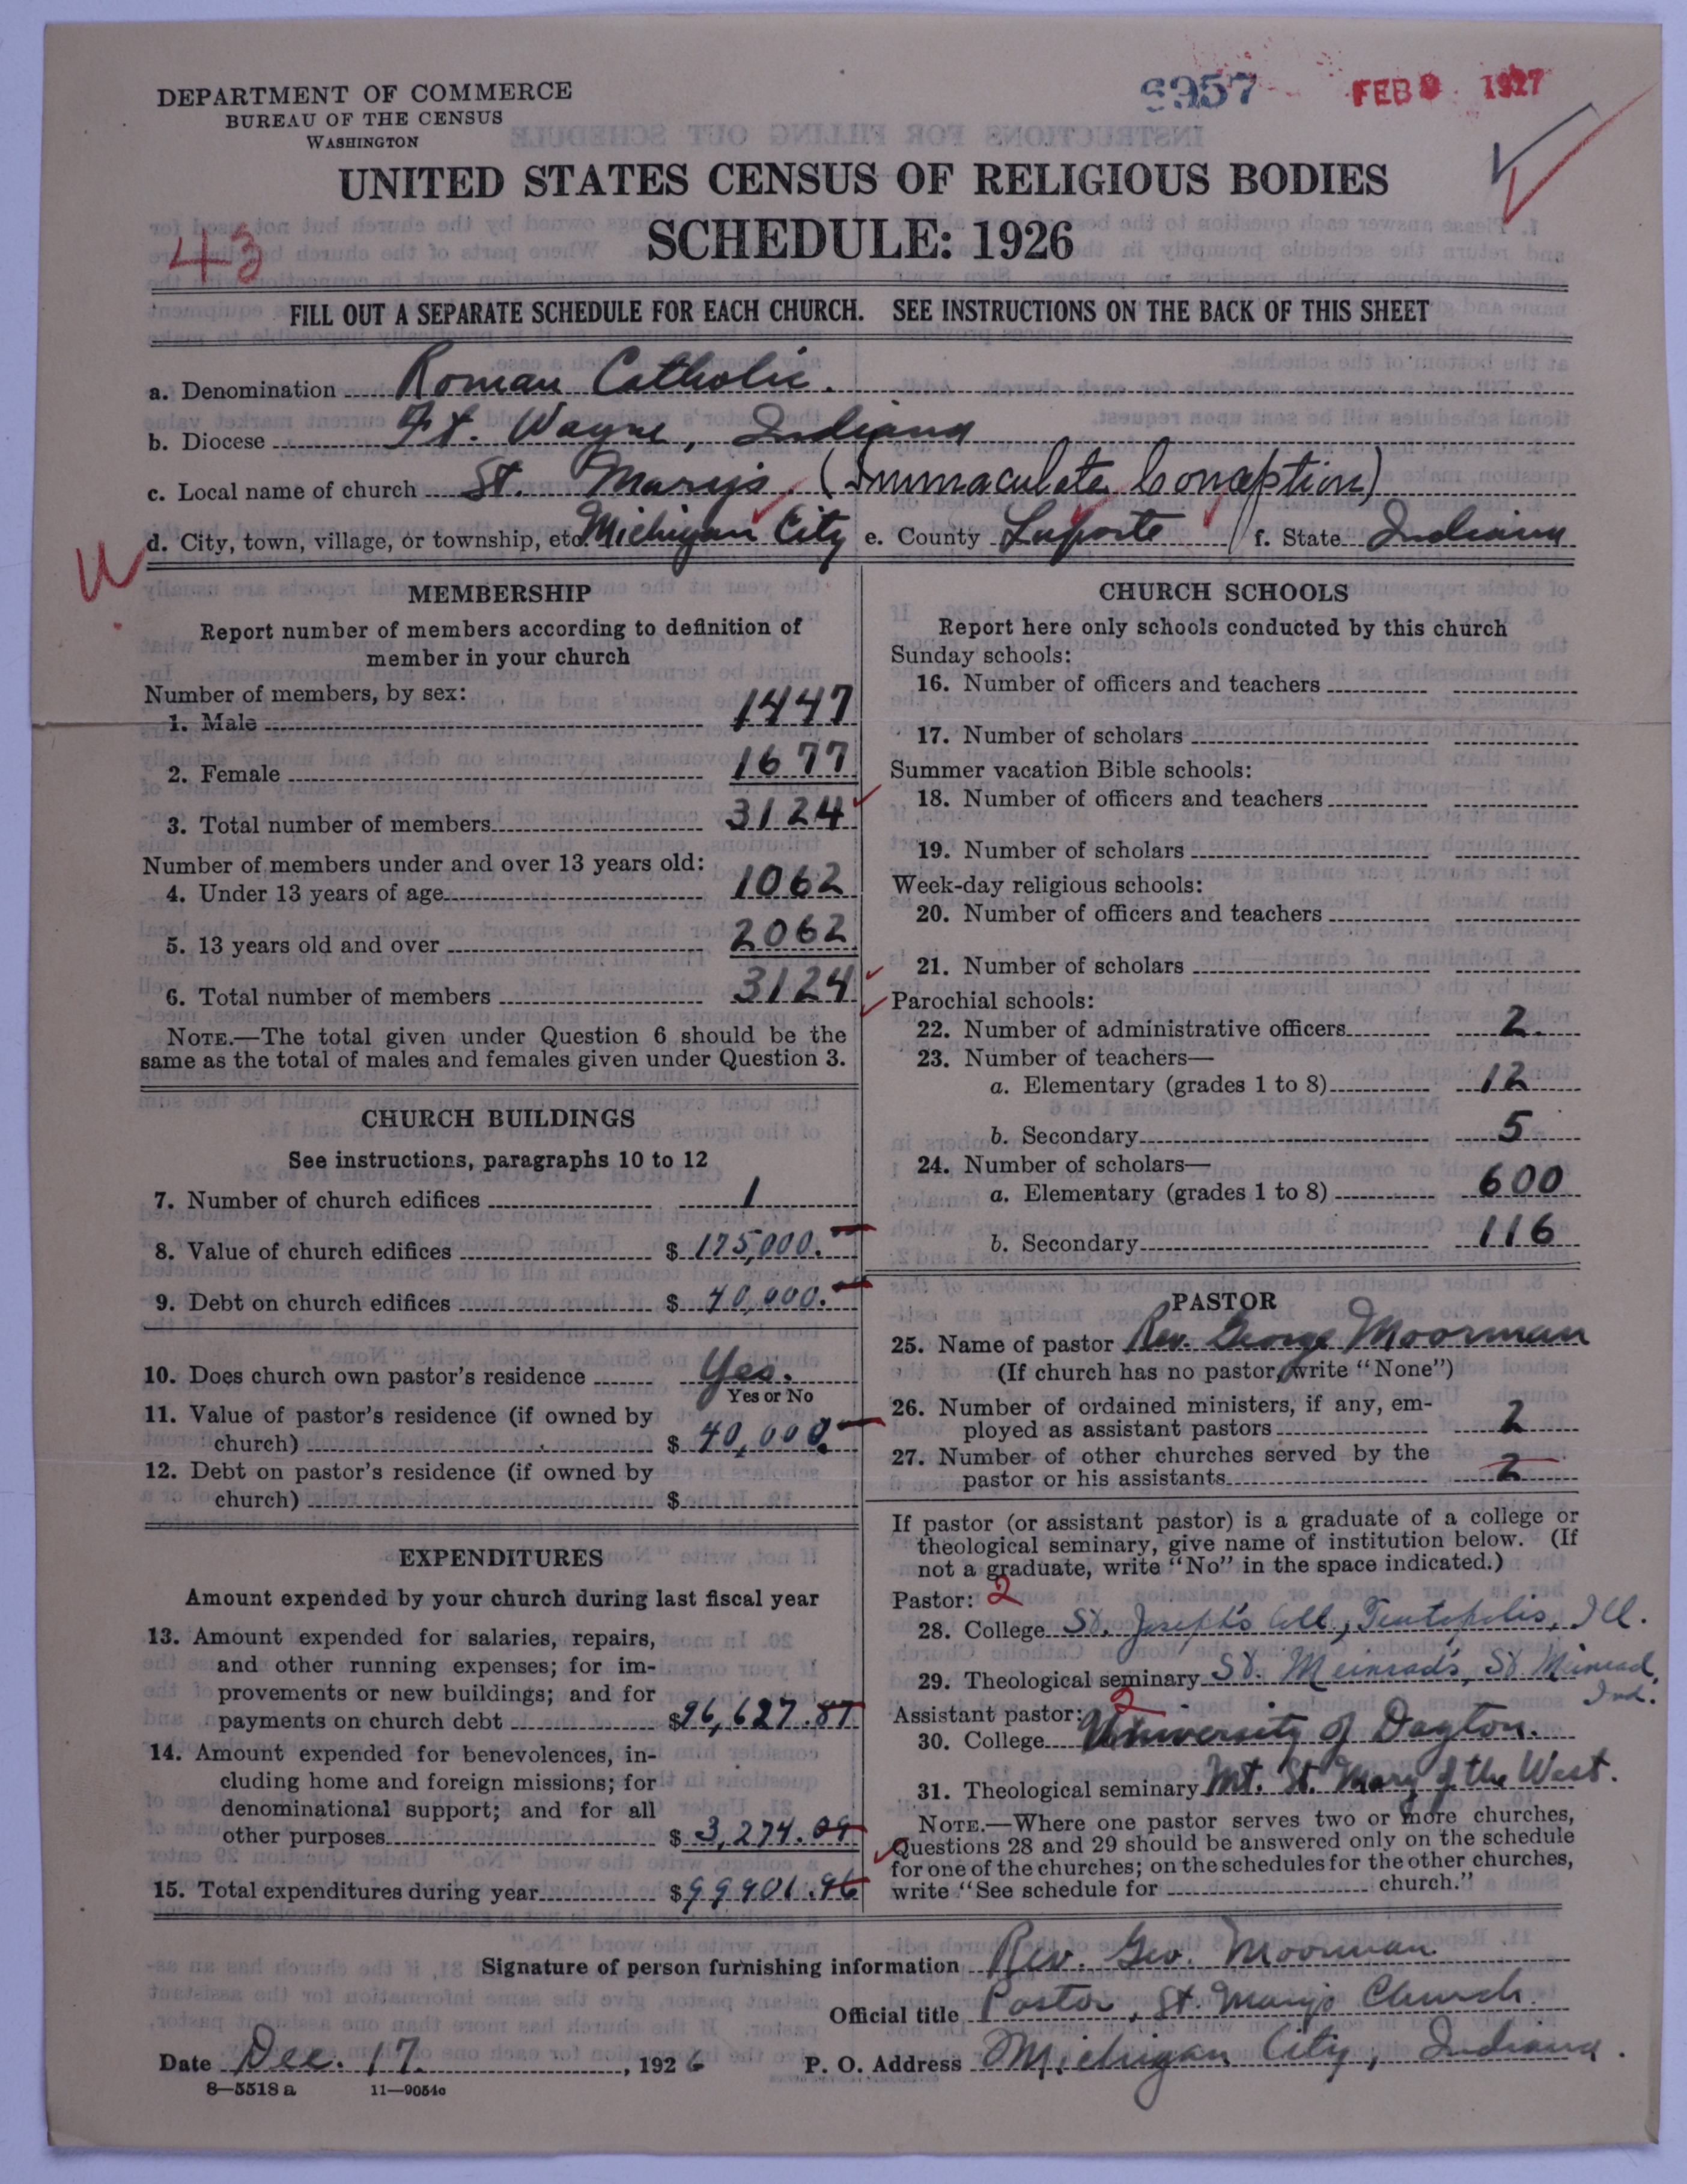 DEPARTMENT OF COMMERCE
BUREAU OF THE CENSUS
WASHINGTON
6957
FEB 9 1927
UNITED STATES CENSUS OF RELIGIOUS BODIES
SCHEDULE: 1926
43
FILL OUT A SEPARATE SCHEDULE FOR EACH CHURCH. SEE INSTRUCTIONS ON THE BACK OF THIS SHEET
a. Denomination Roman Catholic.
b. Diocese Ft. Wayne, Indiana
c. Local name of church St. Mary's. (Immaculate Conception)
d. City, town, village, or township, etc. Michigan City e. County Laporte f. State Indiana
U
MEMBERSHIP
Report number of members according to definition of
member in your church
Number of members, by sex:
1. Male 1447
2. Female 1677
3. Total number of members 3124
Number of members under and over 13 years old:
4. Under 13 years of age 1062
5. 13 years old and over 2062
6. Total number of members 3124
NOTE.—The total given under Question 6 should be the
same as the total of males and females given under Question 3.
CHURCH BUILDINGS
See instructions, paragraphs 10 to 12
7. Number of church edifices 1
8. Value of church edifices $ 175,000.
9. Debt on church edifices $ 40,000.
10. Does church own pastor's residence Yes.
Yes or No
11. Value of pastor's residence (if owned by
church) $ 40,000.
12. Debt on pastor's residence (if owned by
church) $
EXPENDITURES
Amount expended by your church during last fiscal year
13. Amount expended for salaries, repairs,
and other running expenses; for im-
provements or new buildings; and for
payments on church debt $ 96,627.87
14. Amount expended for benevolences, in-
cluding home and foreign missions; for
denominational support; and for all
other purposes $ 3,274.09
15. Total expenditures during year $ 99901.96
CHURCH SCHOOLS
Report here only schools conducted by this church
Sunday schools:
16. Number of officers and teachers
17. Number of scholars
Summer vacation Bible schools:
18. Number of officers and teachers
19. Number of scholars
Week-day religious schools:
20. Number of officers and teachers
21. Number of scholars
Parochial schools:
22. Number of administrative officers 2.
23. Number of teachers—
a. Elementary (grades 1 to 8) 12
b. Secondary 5
24. Number of scholars—
a. Elementary (grades 1 to 8) 600
b. Secondary 116
PASTOR
25. Name of pastor Rev. George Moorman
(If church has no pastor, write "None")
26. Number of ordained ministers, if any, em-
ployed as assistant pastors 2
27. Number of other churches served by the
pastor or his assistants 2
If pastor (or assistant pastor) is a graduate of a college or
theological seminary, give name of institution below. (If
not a graduate, write "No" in the space indicated.)
Pastor: 2
28. College St. Joseph's Coll, Teutopolis, Ill.
29. Theological seminary St. Meinrad's, St Meinrad,
Ind.
Assistant pastor: 2
30. College University of Dayton.
31. Theological seminary Mt. St. Mary of the West.
NOTE.—Where one pastor serves two or more churches,
Questions 28 and 29 should be answered only on the schedule
for one of the churches; on the schedules for the other churches,
write "See schedule for church."
Signature of person furnishing information Rev. Geo. Moorman
Official title Pastor, St. Mary's Church.
Date Dec. 17. , 1926 P. O. Address Michigan City, Indiana.
8—5518 a 11—9054c